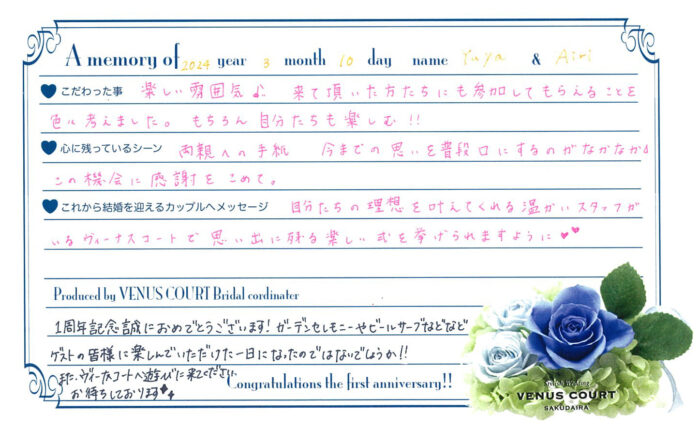 A memory of 2024 year 3 month 10 day name Yuya & Airi
こだわった事 楽しい雰囲気♪ 来て頂いた方たちにも参加してもらえることを
色々考えました。もちろん自分たちも楽しむ!!
心に残っているシーン 両親への手紙 今までの思いを普段口にするのがなかなか
この機会に感謝をこめて。
これから結婚を迎えるカップルへメッセージ 自分たちの理想を叶えてくれる温かいスタッフが
いるヴィーナスコートで思い出に残る楽しい式を挙げられますように♥♥
Produced by VENUS COURT Bridal cordinater
1周年記念誠におめでとうございます!ガーデンセレモニーやビールサーブなどなど
ゲストの皆様に楽しんでいただけた一日になったのではないでしょうか!!
また、ヴィーナスコートへ遊びに来てください
お待ちしております
Congratulations the first anniversary!!
VENUS COURT
SAKUDAIRA